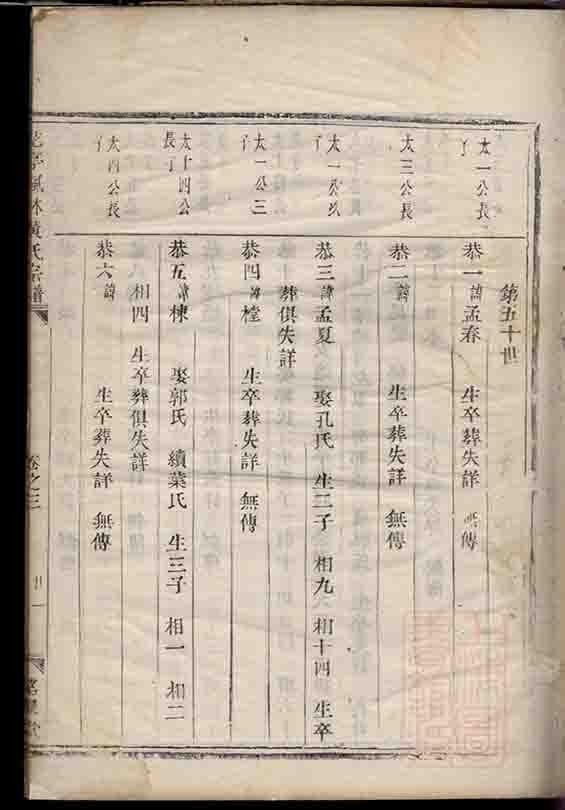 第五十世
太一公長子
恭一 諱孟春 生卒葬失詳 無傳
太三公長
恭二 諱 生卒葬失詳 無傳
太一公次子
恭三 諱孟夏 娶孔氏 生二子 相九 相十四 生卒
葬俱失詳
太一公三子
恭四 諱樘 生卒葬失詳 無傳
太十四公長子
恭五 諱棟 娶郭氏 續葉氏 生三子 相一 相二
相四 生卒葬俱失詳
太四公長子
恭六 諱 生卒葬失詳 無傳
氏宗譜
卷之三